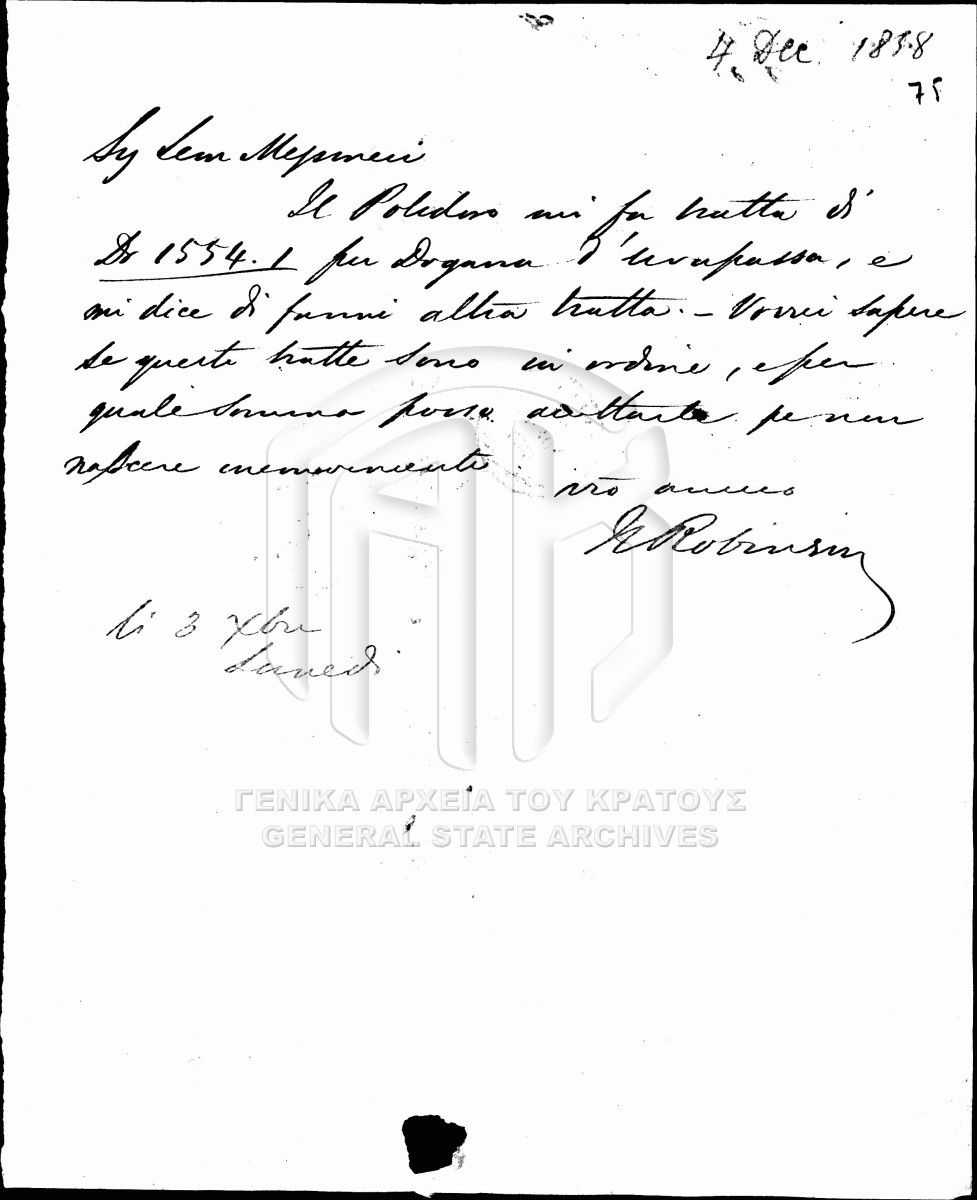 4 Dec 1838
75
Sig Leon Messinesi
Il Polidoro mi fa tratta di
Dr 1554.1 per Dogana d'uva passa, e
mi dice di farmi altra tratta. – Vorrei sapere
se queste tratte sono in ordine, e per
quale somma posso accettarle pe non
nascere
vro amico
Robinson
li 3 Xbre
Lunedi
ΓΕΝΙΚΑ ΑΡΧΕΙΑ ΤΟΥ ΚΡΑΤΟΥΣ
GENERAL STATE ARCHIVES